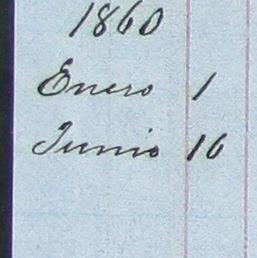 1860
Enero 1
Junio 16